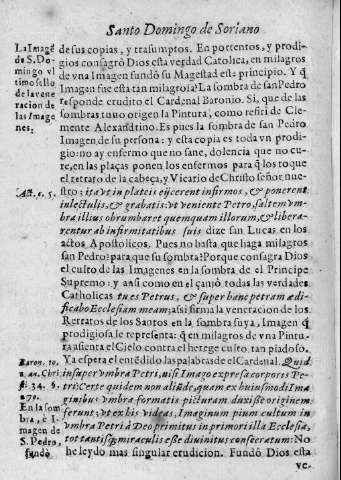 Santo Domingo de Soriano
La Imagẽ
de S. Do-
mingo vl
timo sello
de la vene
racion de
las Image
nes.
de sus copias, y trasumptos. En portentos, y prodi-
gios consagrò Dios esta verdad Catolica, en milagros
de vna Imagen fundò su Magestad este principio. Y q̃
Imagen fue esta tan milagrosa? La sombra de san Pedro
responde erudito el Cardenal Baronio. Si, que de las
sombras tuuo origen la Pintura, como refiri de Cle-
mente Alexandrino. Es pues la sombra de san Pedro
Imagen de su persona: y esta copia es toda vn prodi-
gio: no ay enfermo que no sane, dolencia que no cu-
re, en las plaças ponen los enfermos para q̃ los toque
el retrato de la cabeça, y Vicario de Christo señor nue-
stro: ita vt in plateis eijcerent infirmos, & ponerent
Act. c. 5.
in lectulis, & grabatis: vt veniente Petro, saltem vm-
bra illius obrumbaret quemquam illorum, & libera-
rentur ab infirmitatibus suis dize san Lucas en los
actos Apostolicos. Pues no basta que haga milagros
san Pedro? para que su sombra? Porque consagra Dios
el culto de las Imagenes en la sombra de el Principe
Supremo: y ansi como en el cantò todas las verdades
Catholicas tu es Petrus, & super hanc petram ædi-
ficabo Ecclesiam meam; asi firma la veneracion de los
Retratos de los Santos en la sombra suya, Imagen q̃
prodigiosa le representa: q̃ en milagros de vna Pintu-
ra asienta el Cielo contra el herege culto tan piadoso.
Ya espera el entẽdido las palabras de el Cardenal. Quid
Baron. to.
1. an. Chri
sti 34. §.
270.
insuper vmbra Petri, nisi Imago expresa corporis Pe-
tri: Certe quidem non aliũde, quam ex huiusmodi Ima
ginibus vmbra formatis picturam duxiße originem
ferunt; vt ex his videas, Imaginum pium cultum in
vmbra Petri à Deo primitus in primori illa Ecclesia,
tot tantisq; miraculis eße diuinitus consecratum: No
En la som
bra, è I-
magen de
S. Pedro,
fundò
he leydo mas singular erudicion. Fundò Dios esta
ve-